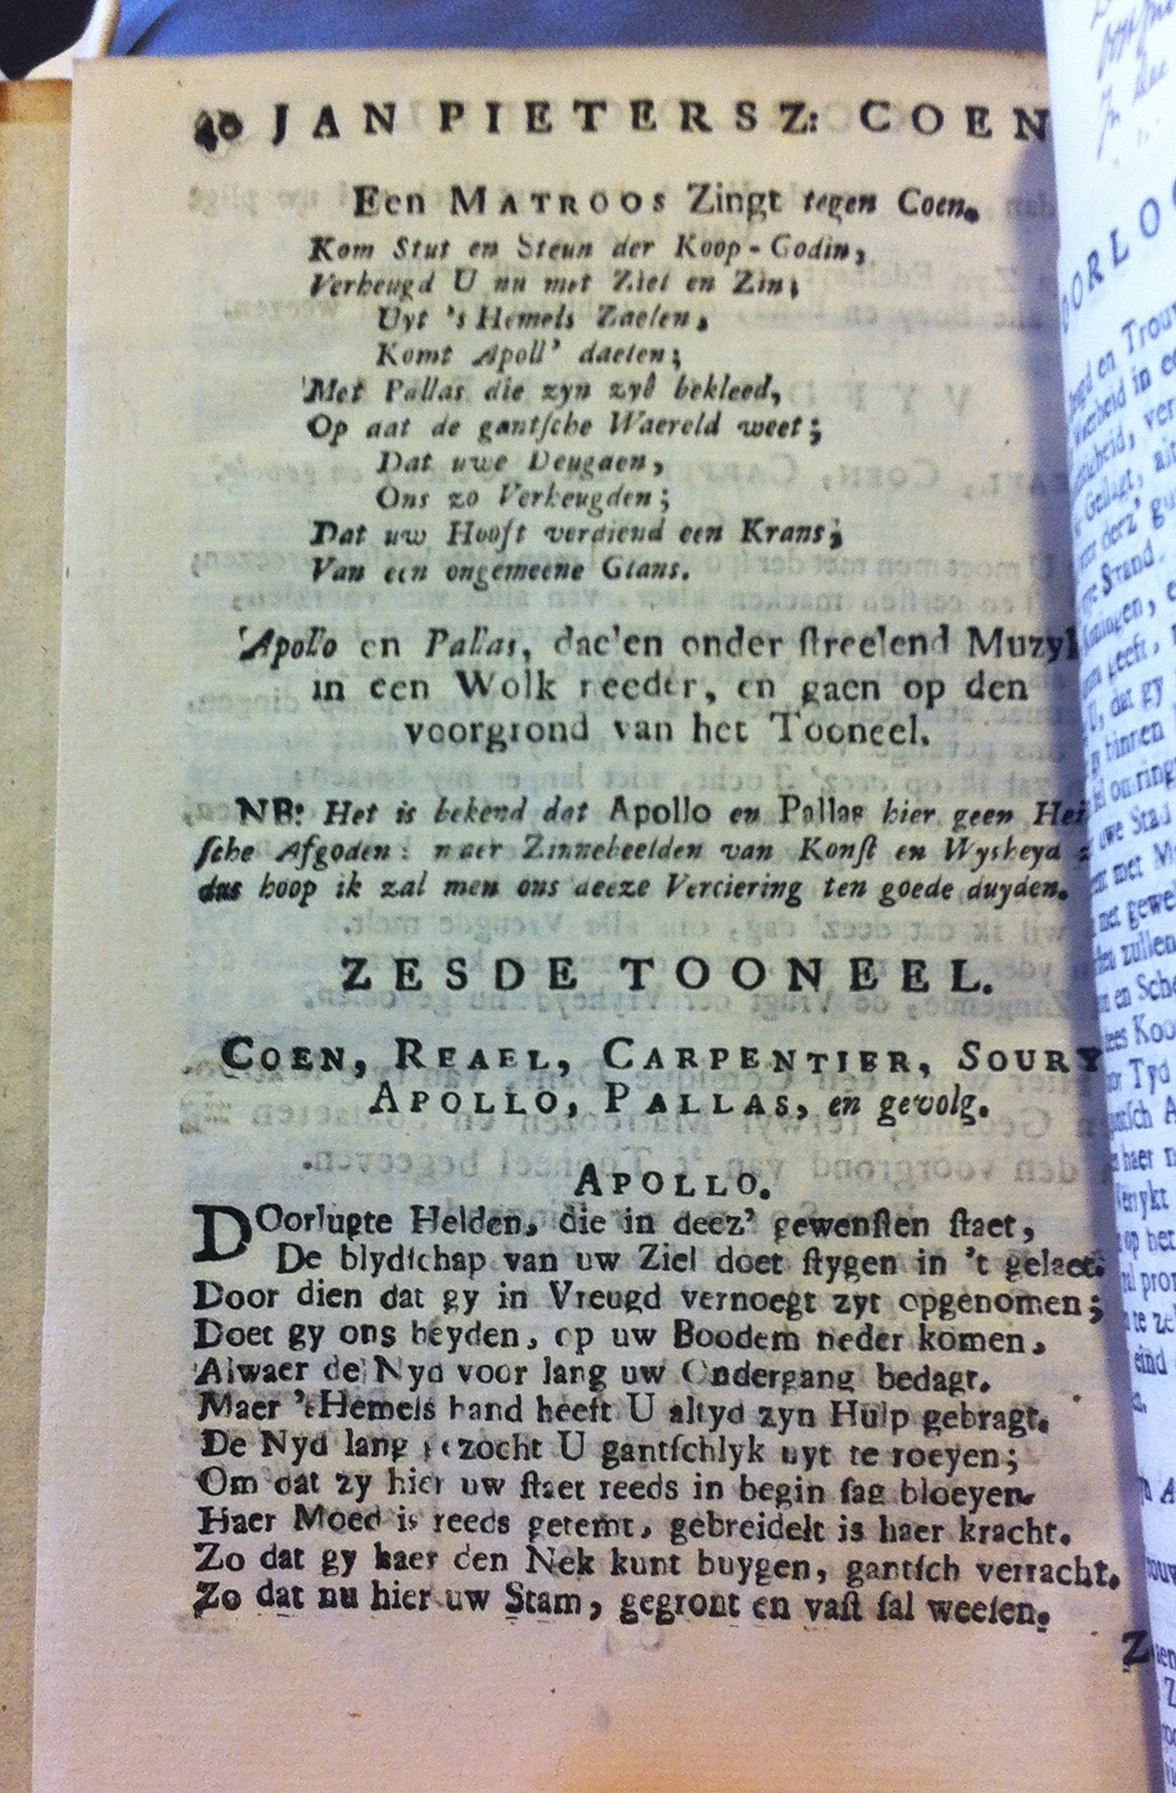 40 JAN PIETERSZ: COEN
Een MATROOS Zingt tegen Coen.
Kom Stut en Steun der Koop-Godin,
Verheugd U nu met Ziel en Zin;
Uyt 's Hemels Zaelen,
Komt Apoll' daelen;
Met Pallas die zyn zyd bekleed,
Op dat de gantſche Waereld weet;
Dat uwe Deugden,
Ons zo Verheugden;
Dat uw Hooft verdiend een Krans;
Van een ongemeene Glans.
Apollo en Pallas, dae'en onder ſtreelend Muzyk
in een Wolk needer, en gaen op den
voorgrond van het Tooneel.
NB: Het is bekend dat Apollo en Pallas hier geen Hei
ſche Afgoden: maer Zinnebeelden van Konſt en Wysheyd z
dus hoop ik zal men ons deeze Verciering ten goede duyden.
ZESDE TOONEEL.
COEN, REAEL, CARPENTIER, SOURY
APOLLO, PALLAS, en gevolg.
APOLLO.
DOorlugte Helden, die in deez' gewenſten ſtaet,
De blydſchap van uw Ziel doet ſtygen in 't gelaet.
Door dien dat gy in Vreugd vernoegt zyt opgenomen;
Doet gy ons beyden, op uw Boodem neder komen,
Alwaer de Nyd voor lang uw Ondergang bedagt.
Maer 't Hemels hand heeft U altyd zyn Hulp gebragt.
De Nyd lang gezocht U gantſchlyk uyt te roeyen;
Om dat zy hier uw ſtaet reeds in begin ſag bloeyen.
Haer Moed is reeds getemt, gebreidelt is haer kracht.
Zo dat gy haer den Nek kunt buygen, gantſch verracht.
Zo dat nu hier uw Stam, gegront en vaſt ſal weeſen.
Z